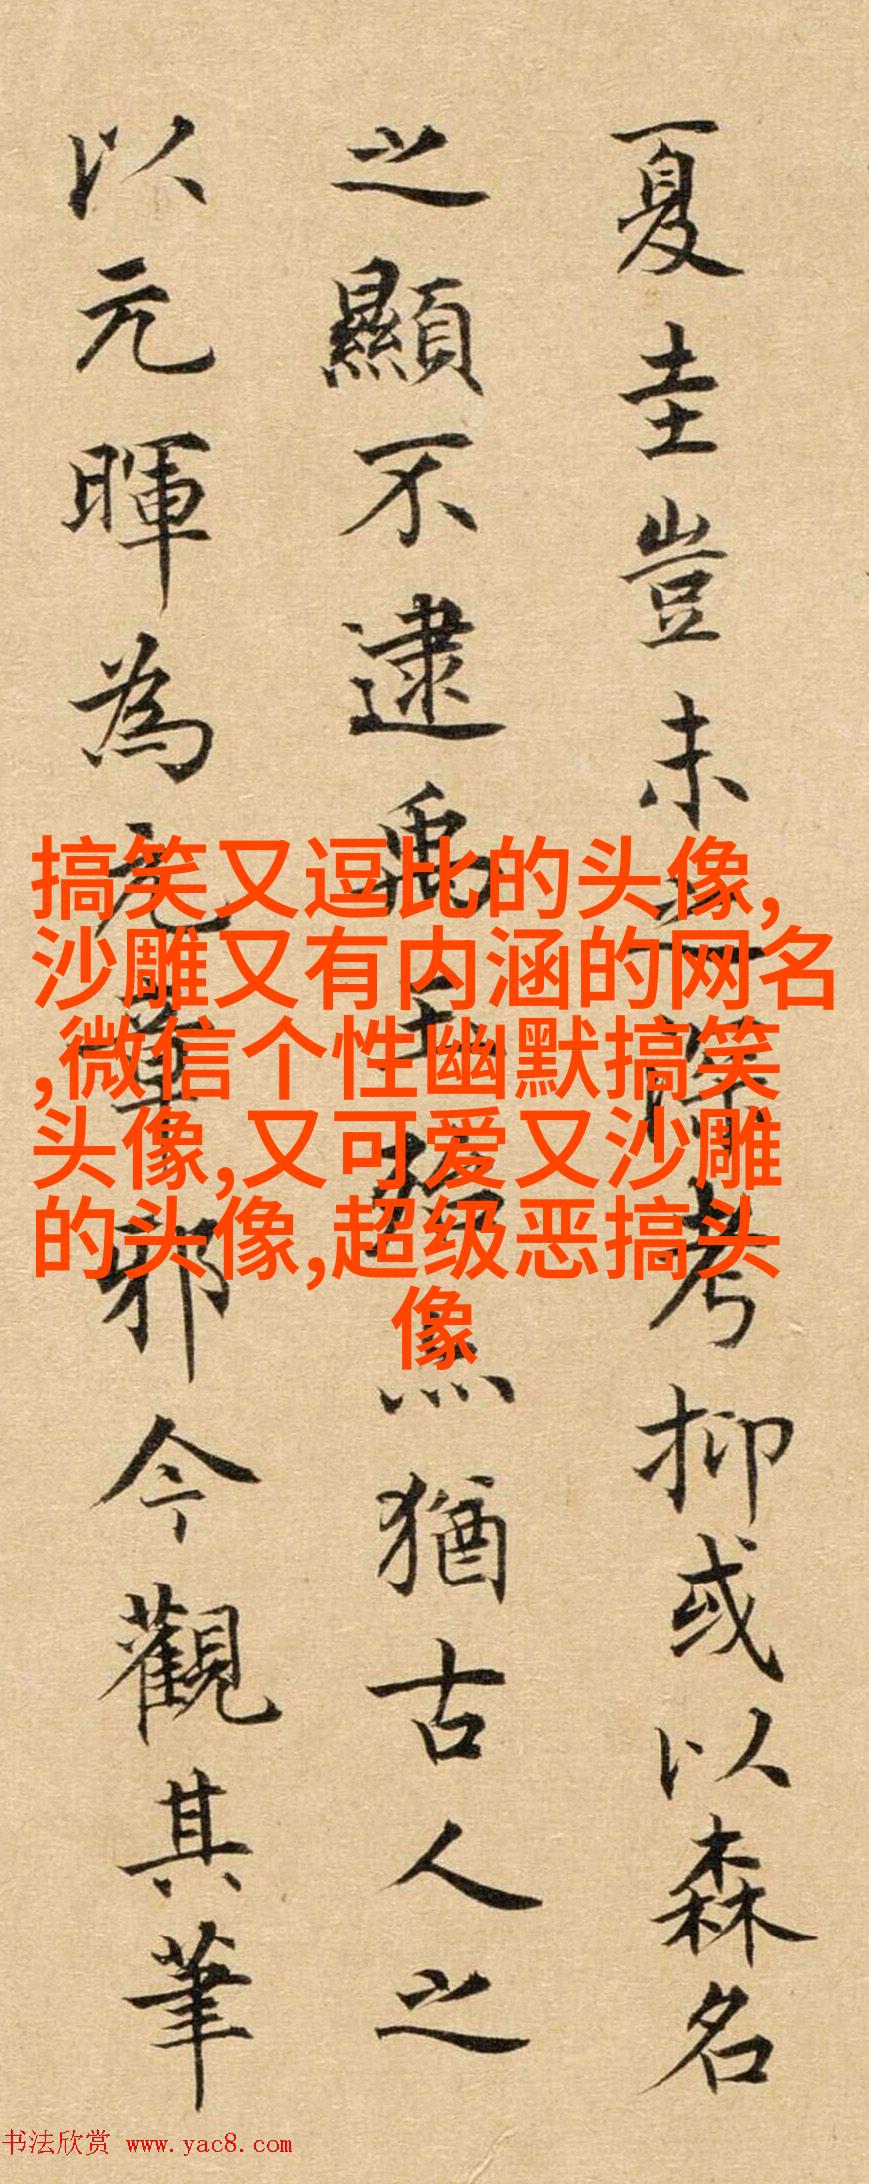 夏圭豈未之深考抑或以森名
之顯不逮禹玉殆然猶古人之
以元暉為元章邪今觀其筆
搞笑又逗比的头像,
沙雕又有内涵的网名
,微信个性幽默搞笑
头像,又可爱又沙雕
的头像,超级恶搞头
像
书法欣赏 www.yac8.com